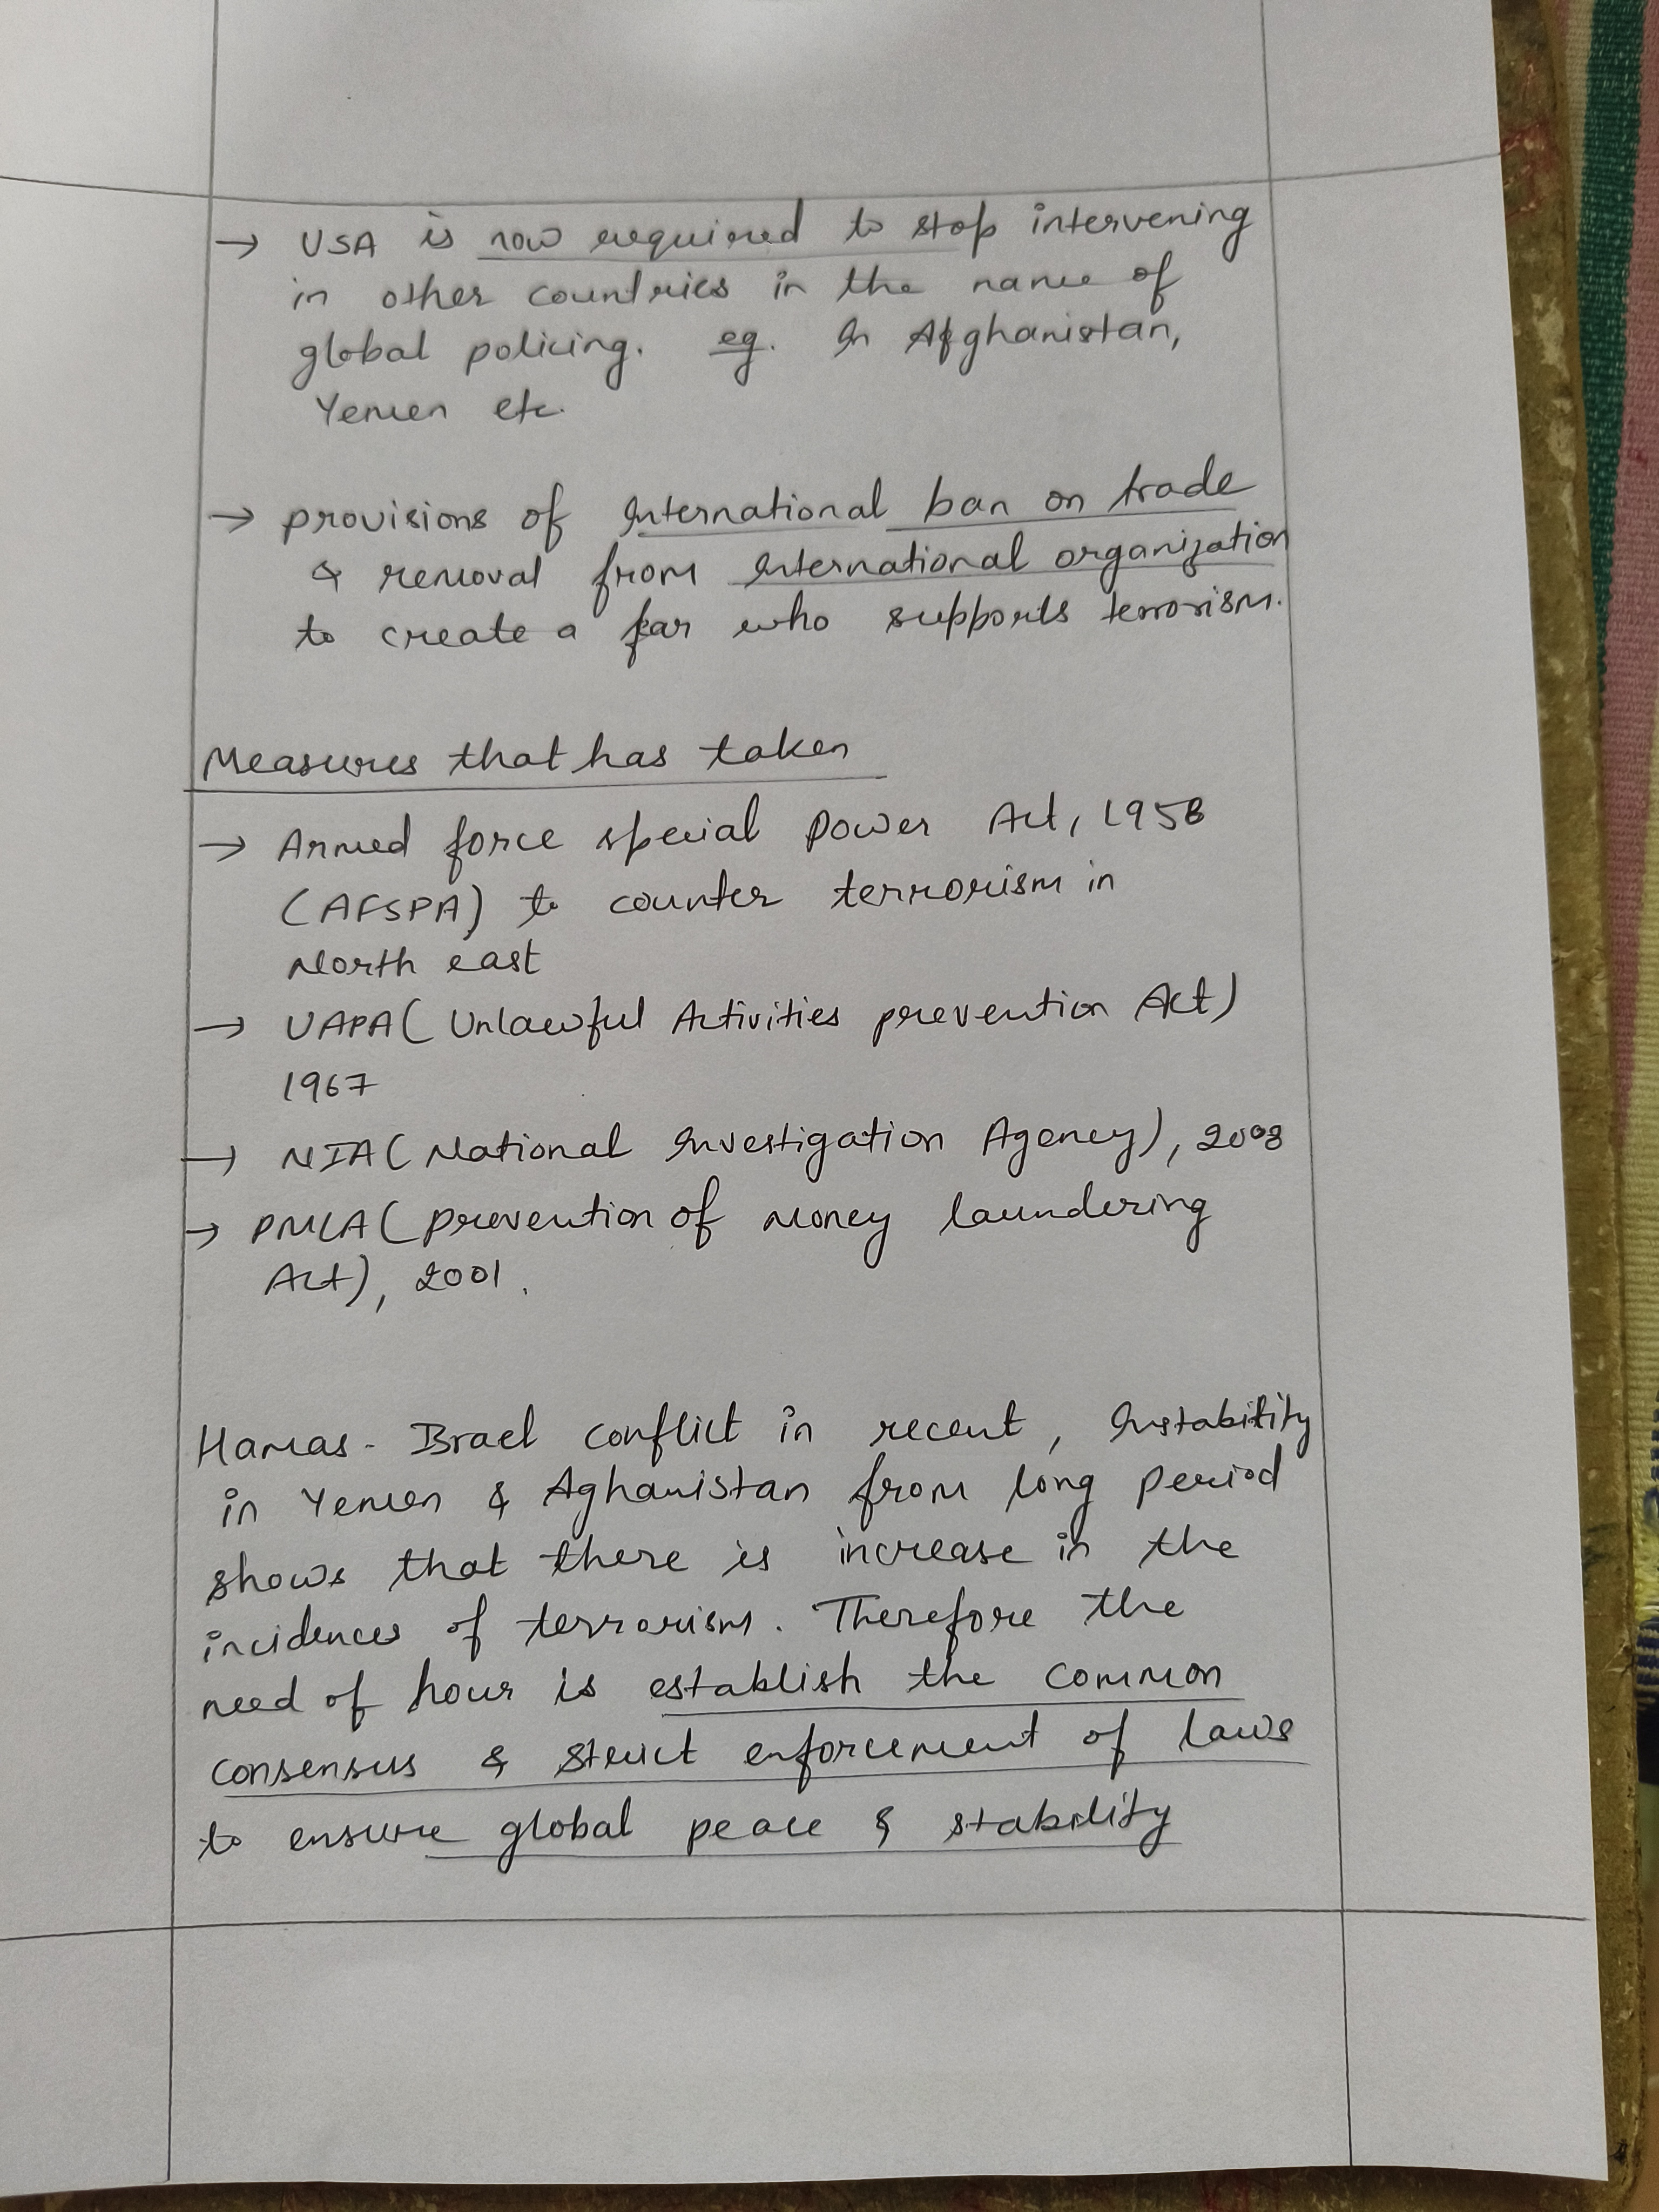 → USA is now required to stop intervening
in other countries in the name of
global policing. eg. In Afghanistan,
Yemen etc.
→ provisions of International ban on trade
& removal from International organization
to create a fear who supports terrorism.
Measures that has taken
→ Armed force special Power Act, 1958
(AFSPA) to counter terrorism in
North east
→ UAPA (Unlawful Activities prevention Act)
1967
→ NIA (National Investigation Agency), 2008
→ PMLA (prevention of Money laundering
Act), 2001.
Hamas - Israel conflict in recent, Instability
in Yemen & Aghanistan from long period
shows that there is increase in the
incidences of terrorism. Therefore the
need of hour is establish the common
consensus & strict enforcement of laws
to ensure global peace & stability